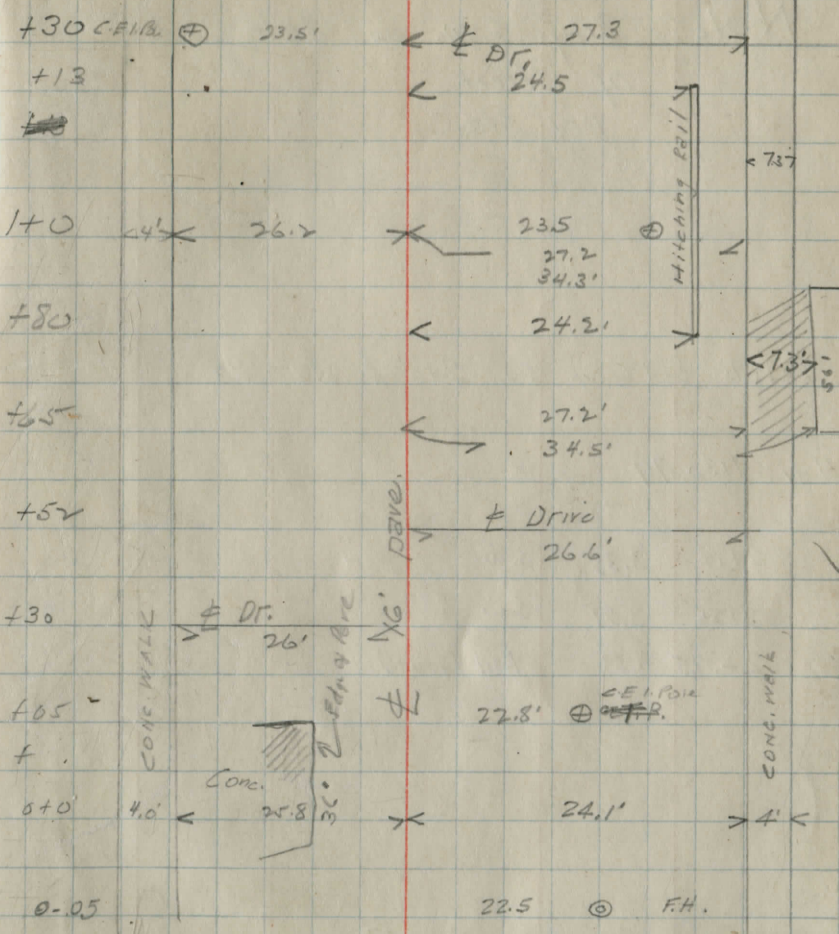 +30 C.E.I.Po. 23.5' 27.3
℄ Dr.
+13 24.5
Hitching Rail
7.3'
1+0 4' 26.2 23.5
27.2
34.3'
+80 24.2'
7.3'
+65 27.2'
34.5'
+52 ℄ Drive
26.6'
pave.
+30 ℄ Dr.
26' 16'
CONC. WALK
Edge of Pave
℄
+05 22.8' C.E.I. Pole
CONC. WALK
+
Conc.
0+0 4.0' 25.8 36" 24.1' 4'
0-.05 22.5 F.H.